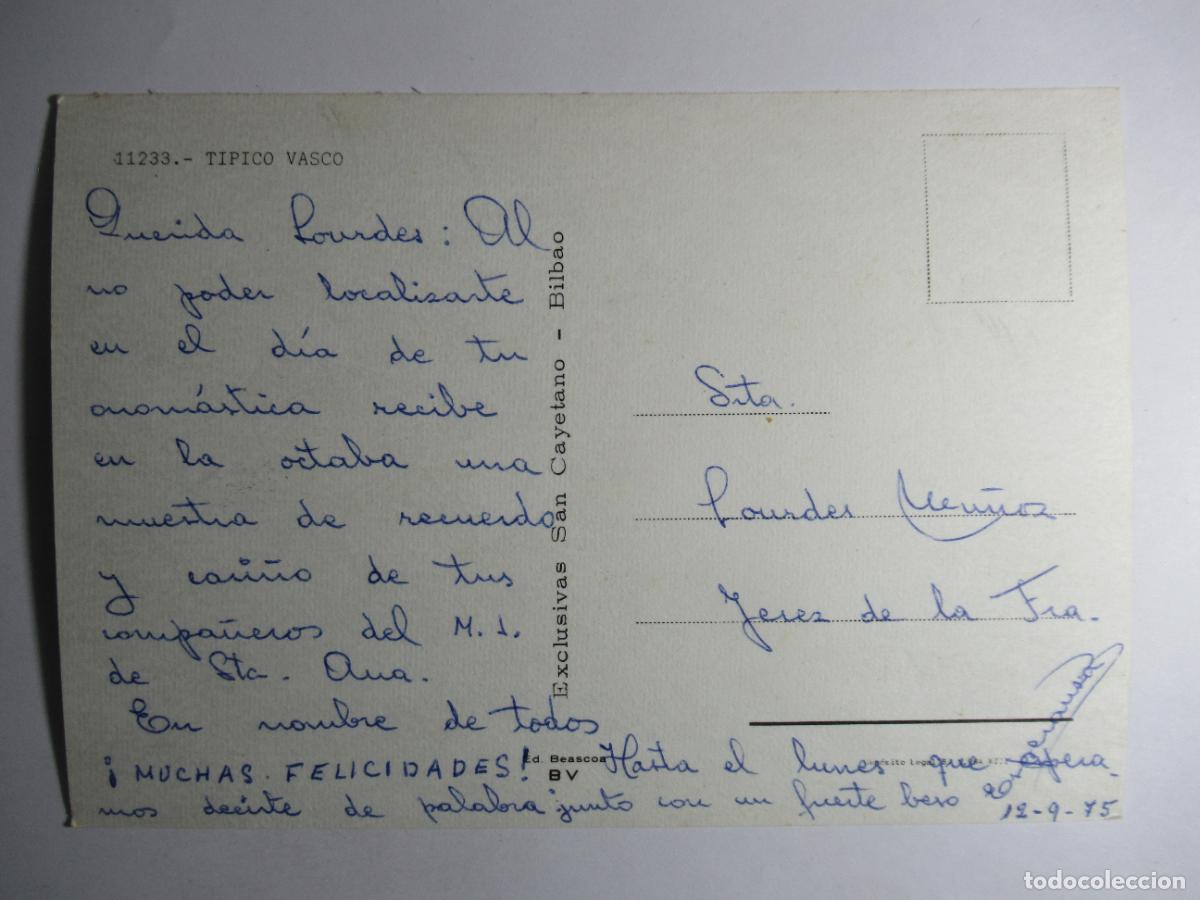 11233.- TIPICO VASCO
Querida Lourdes: Al
no poder localizarte
en el día de tu
onomástica recibe
en la octaba una
muestra de recuerdo
y cariño de tus
compañeros del M.I.
de Sta. Ana.
En nombre de todos
¡MUCHAS FELICIDADES! Hasta el lunes que espera-
mos decirte de palabra junto con un fuerte beso
12-9-75
Exclusivas San Cayetano - Bilbao
Ed. Beascoa
BV
Depósito Legal
Srta.
Lourdes Muñoz
Jerez de la Fra.
todocoleccion